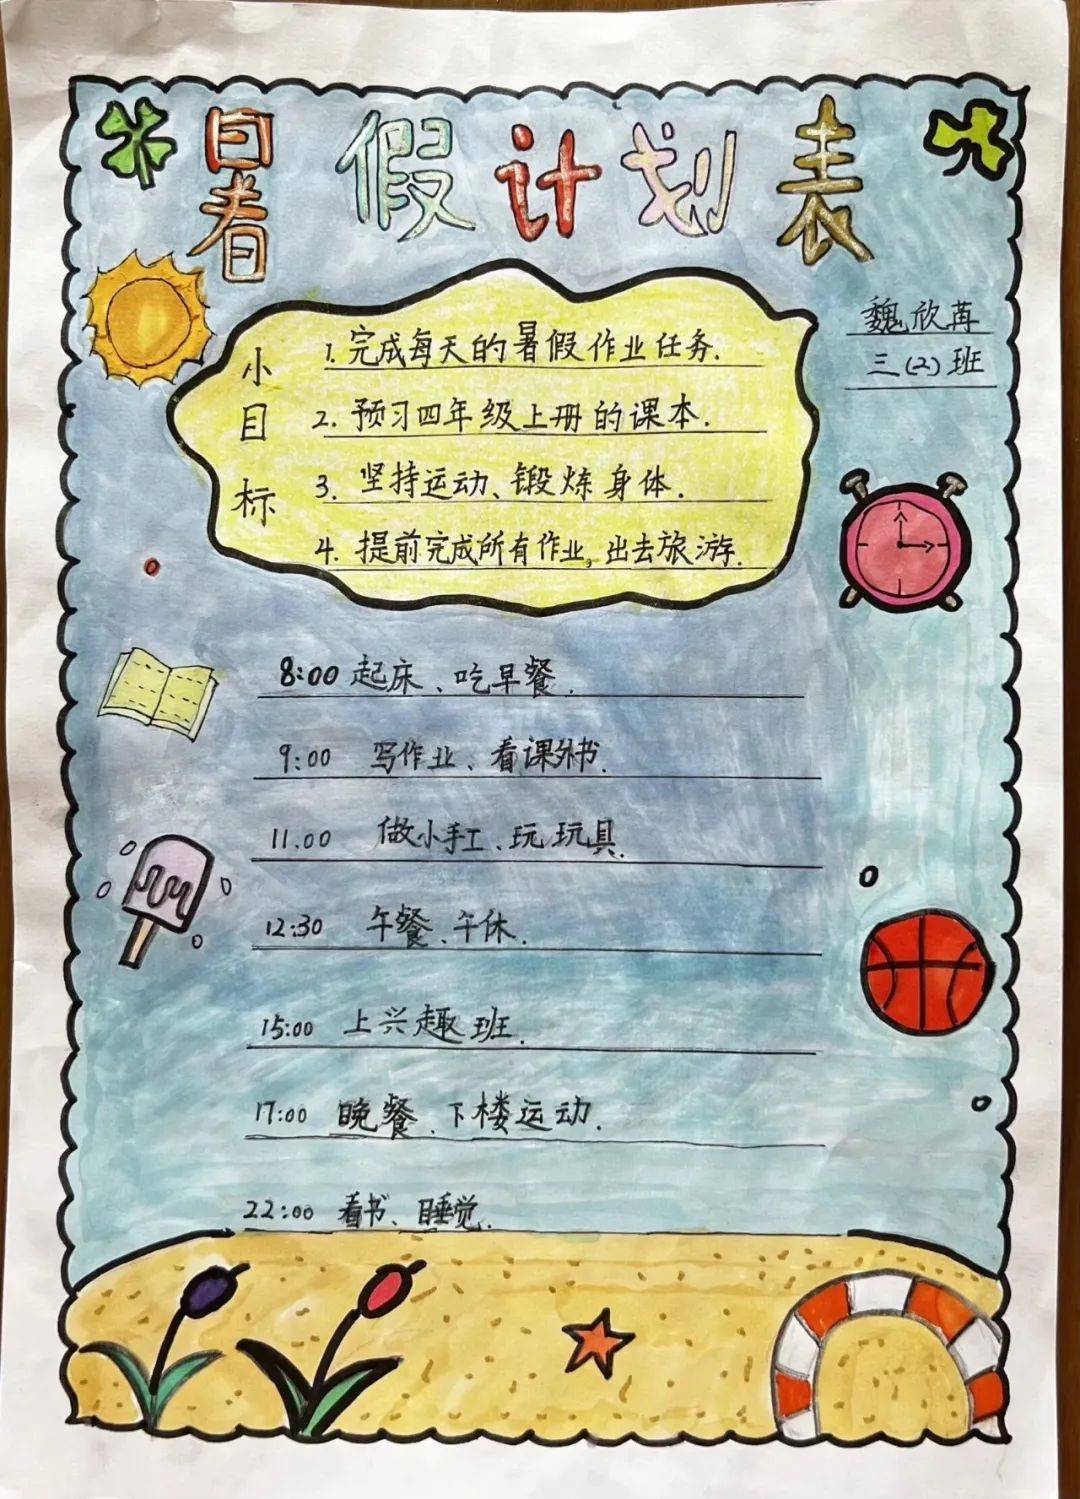 暑假计划表
魏欣苒
三(2)班
小目标
1. 完成每天的暑假作业任务.
2. 预习四年级上册的课本.
3. 坚持运动、锻炼身体.
4. 提前完成所有作业, 出去旅游.
8:00 起床、吃早餐.
9:00 写作业、看课外书.
11.00 做小手工、玩玩具.
12:30 午餐、午休.
15:00 上兴趣班.
17:00 晚餐、下楼运动.
22:00 看书、睡觉.